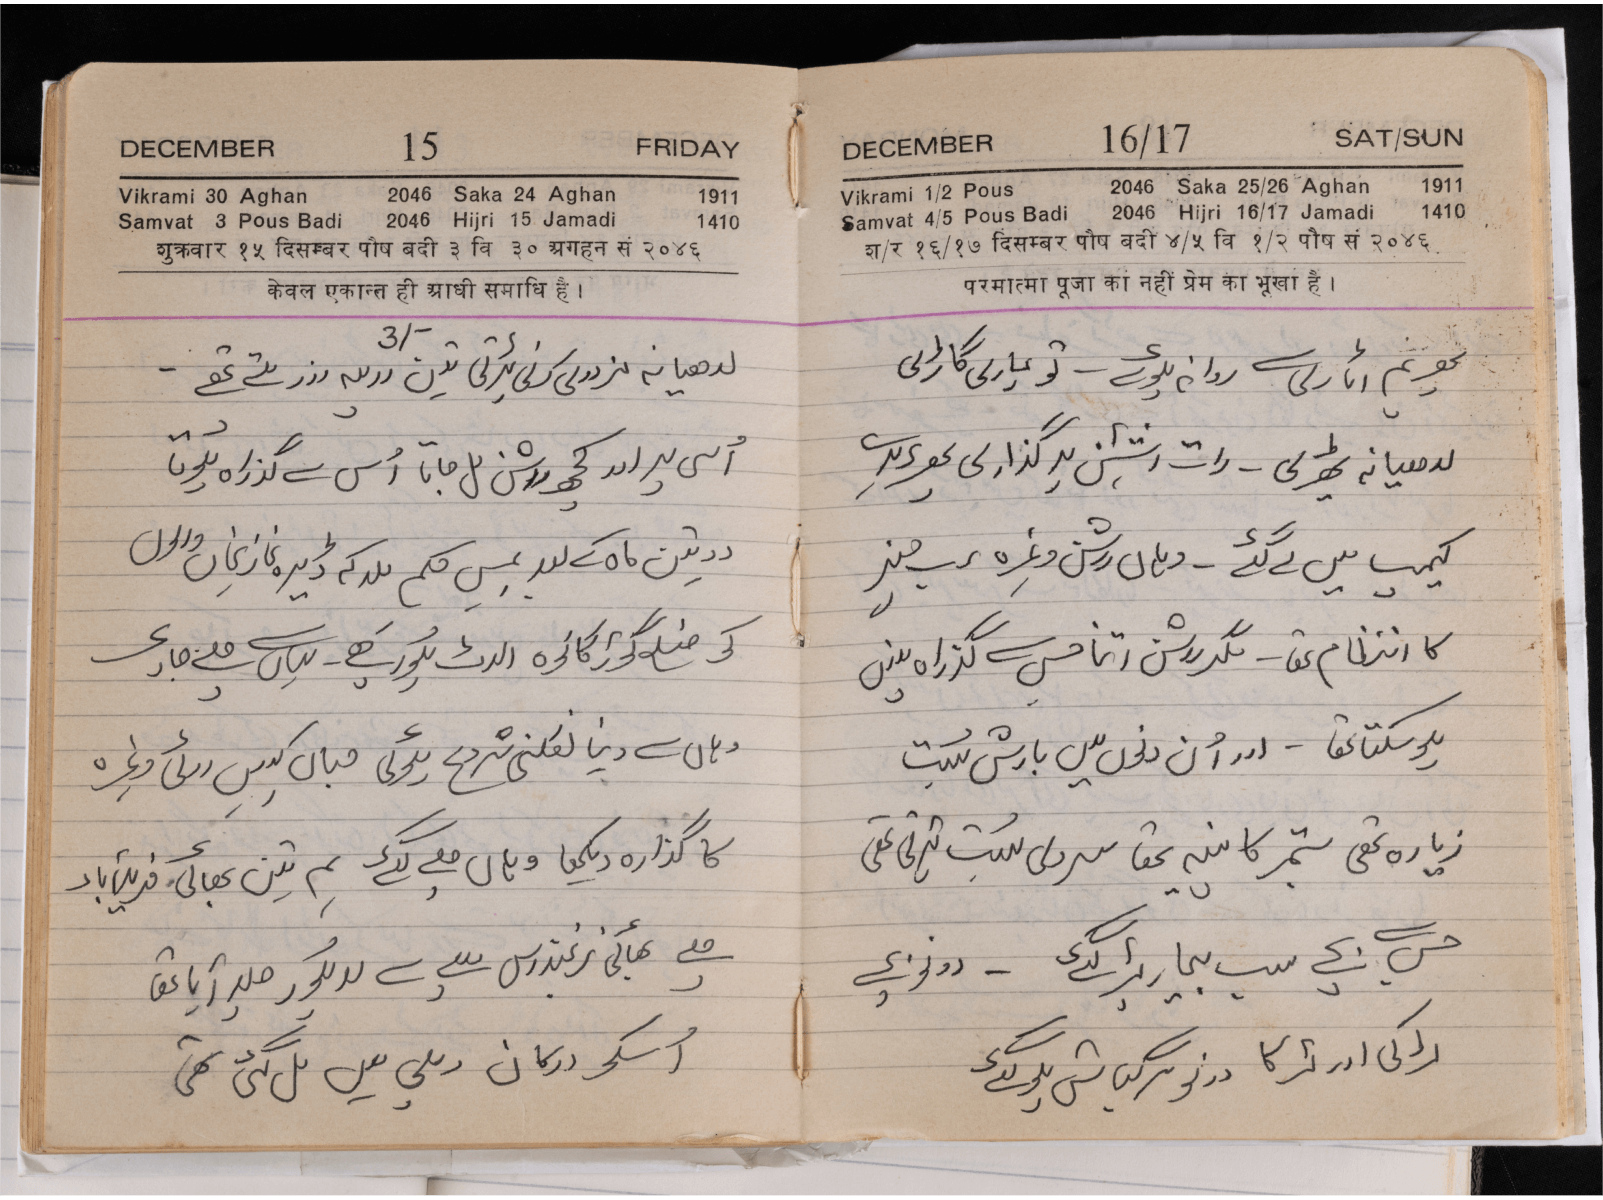 DECEMBER 15 FRIDAY
Vikrami 30 Aghan 2046 Saka 24 Aghan 1911
Samvat 3 Pous Badi 2046 Hijri 15 Jamadi 1410
शुक्रवार १५ दिसम्बर पौष बदी ३ वि ३० अगहन सं २०४६
केवल एकान्त ही आधी समाधि है।
3/-
لدھیانہ مزدوری کرنی پڑتی تین روپیہ روز ملتے تھے -
اُسی پر اور کچھ راشن مل جاتا اُس سے گذراہ ہوتا
دو تین ماہ کے بعد ہمیں حکم ملا کہ ڈیرہ غازیخاں والوں
کو ضلع گوڑگانوہ الاٹ ہو رہے - یہاں سے چلے جاوے
وہاں سے دنیا نکلنی شروع ہوئی جہاں کہیں روٹی وغیرہ
کا گذارہ دیکھا وہاں چلے گئے ہم تین بھائی فریدآباد
چلے بھائی پہلے سے لاہور چلا آیا تھا
اُسکو دوکان دہلی میں مل گئی تھی
DECEMBER 16/17 SAT/SUN
Vikrami 1/2 Pous 2046 Saka 25/26 Aghan 1911
Samvat 4/5 Pous Badi 2046 Hijri 16/17 Jamadi 1410
श/र १६/१७ दिसम्बर पौष बदी ४/५ वि १/२ पौष सं २०४६
परमात्मा पूजा का नहीं प्रेम का भूखा है।
پھر ہم اٹاری سے روانہ ہوئے - تو ہماری گاڑی
لدھیانہ ٹھہری - رات اسٹیشن پر گذاری پھر ہمیں
کیمپ میں لے گئے - وہاں راشن وغیرہ سب چیز
کا انتظام تھا - مگر راشن اتنا جس سے گذراہ نہیں
ہو سکتا تھا - اور اُن دنوں میں بارش بہت
زیادہ تھی ستمبر کا مہینہ تھا سردی بہت پڑتی تھی
جس سے بچے سب بیمار پڑ گئے - دونو بچے
لڑکی اور لڑکا دونو سرگباش ہو گئے